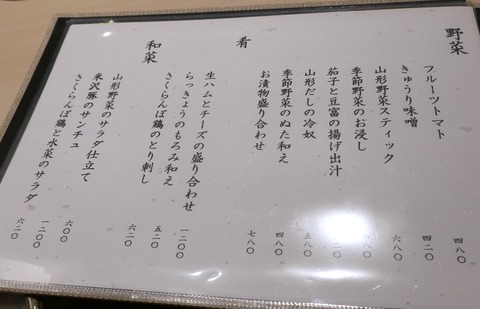 野菜
フルーツトマト 四八〇
きゅうり味噌 四二〇
山形野菜スティック 六八〇
季節野菜のお浸し
茄子と豆富の揚げ出汁
山形だしの冷奴 五八〇
季節野菜のぬた和え 四八〇
お漬物盛り合わせ 七八〇
肴
生ハムとチーズの盛り合わせ 一二〇〇
らっきょうのもろみ和え 五二〇
さくらんぼ鶏のとり刺し 六二〇
和菜
山形野菜のサラダ仕立て 六〇〇
米沢豚のサンチュ 一二〇〇
さくらんぼ鶏と水菜のサラダ 六二〇